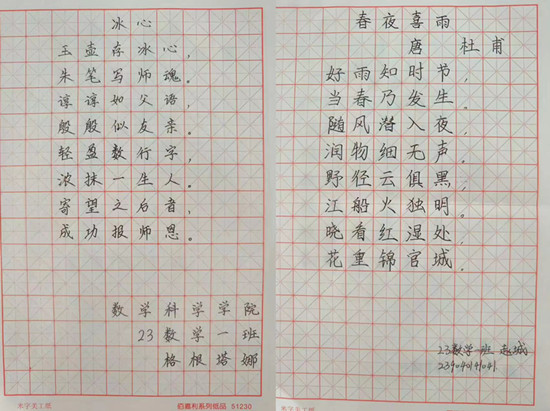 冰心
玉壶存冰心，
朱笔写师魂。
谆谆如父语，
殷殷似友亲。
轻盈数行字，
浓抹一生人。
寄望之后者，
成功报师恩。
数学科学学院
23数学一班
格根塔娜
米字美工纸
佰嘉利系列纸品 51230
春夜喜雨
唐 杜甫
好雨知时节，
当春乃发生。
随风潜入夜，
润物细无声。
野径云俱黑，
江船火独明。
晓看红湿处，
花重锦官城。
23数学 班